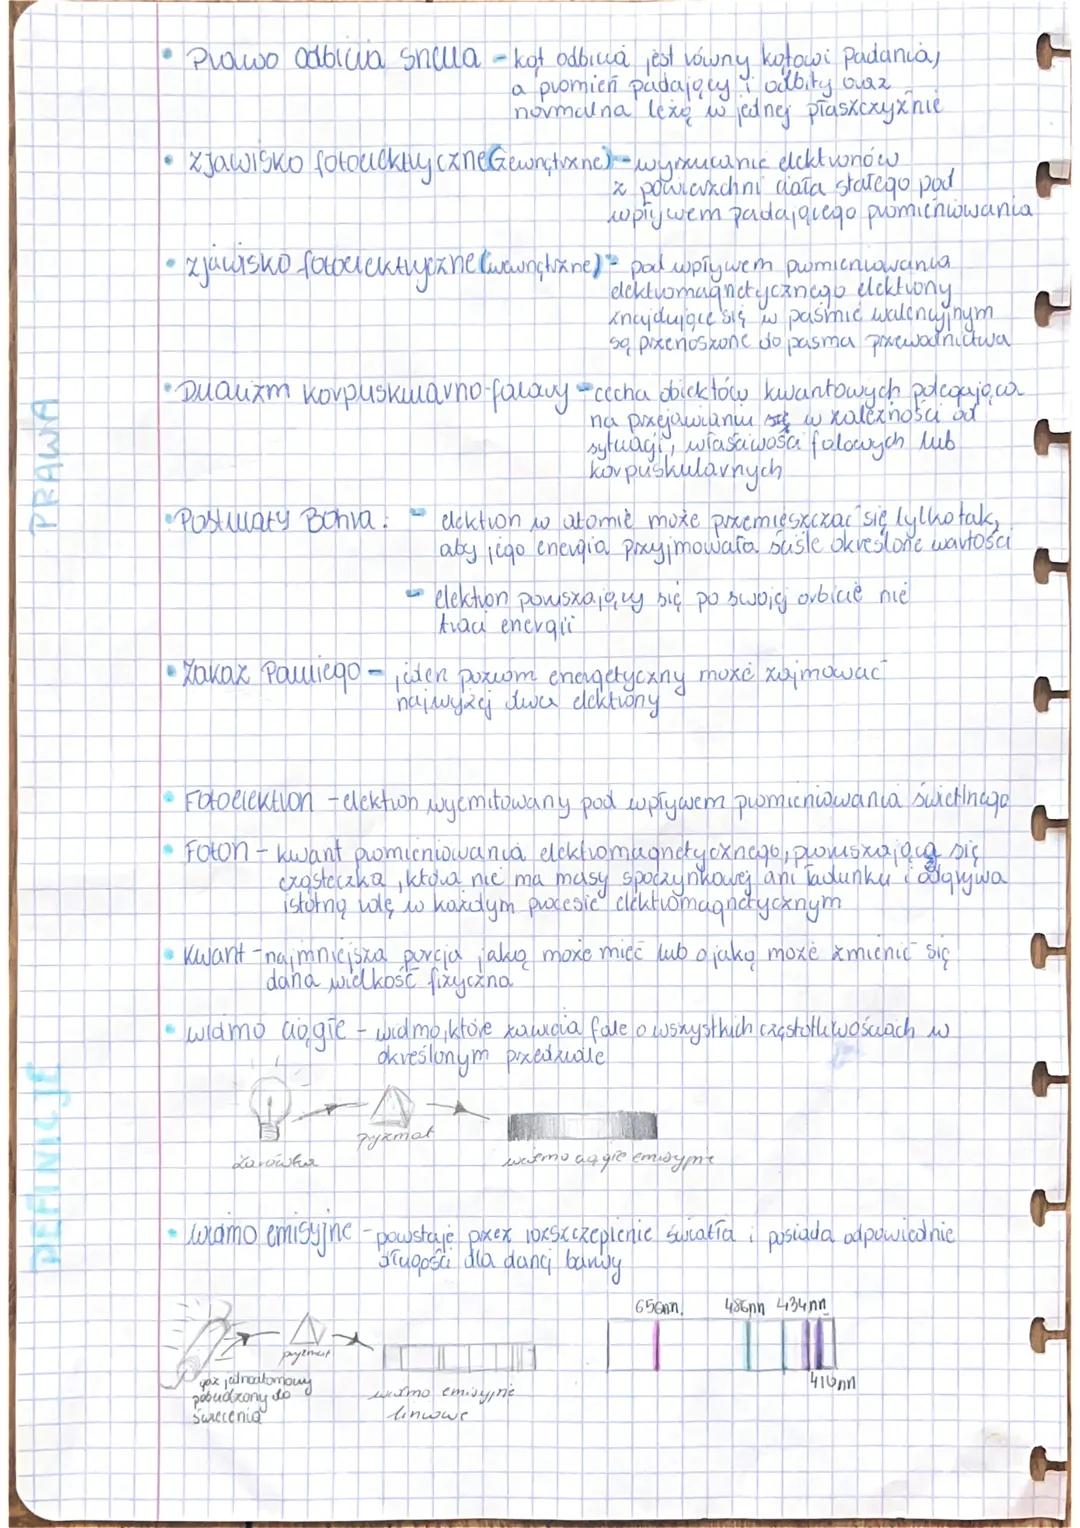 PRAWA
• Prawo odbicia Snella - kąt odbicia jest równy kątowi padania,
a promień padający i odbity oraz
normalna leżą w jednej płaszczyźnie
• Zjawisko fotoelektryczne (zewnętrzne) - wyrzucanie elektronów
z powierzchni ciała stałego pod
wpływem padającego promieniowania
• zjawisko fotoelektryczne (wewnętrzne) - pod wpływem promieniowania
elektromagnetycznego elektrony
znajdujące się w paśmie walencyjnym
są przenoszone do pasma przewodnictwa
• Dualizm korpuskularno-falowy - cecha obiektów kwantowych polegająca
na przejawianiu się w zależności od
sytuacji, właściwości falowych lub
korpuskularnych
• Postulaty Bohra: - elektron w atomie może przemieszczać się tylko tak,
aby jego energia przyjmowała ściśle określone wartości
- elektron poruszający się po swojej orbicie nie
traci energii
• Zakaz Pauliego - jeden poziom energetyczny może zajmować
najwyżej dwa elektrony
DEFINICJE
• Fotoelektron - elektron wyemitowany pod wpływem promieniowania świetlnego
• Foton - kwant promieniowania elektromagnetycznego, poruszającą się
cząsteczka, która nie ma masy spoczynkowej ani ładunku i odgrywa
istotną rolę w każdym procesie elektromagnetycznym
• Kwant - najmniejsza porcja jaką może mieć lub o jaką może zmienić się
dana wielkość fizyczna
• widmo ciągłe - widmo, które zawiera fale o wszystkich częstotliwościach w
określonym przedziale
żarówka
pryzmat
widmo ciągłe emisyjne
• widmo emisyjne - powstaje przez rozszczepienie światła i posiada odpowiednie
długości dla danej barwy
656nn. 486nn 434nn
410nn
pryzmat
gaz jednoatomowy
pobudzony do
świecenia
widmo emisyjne
liniowe